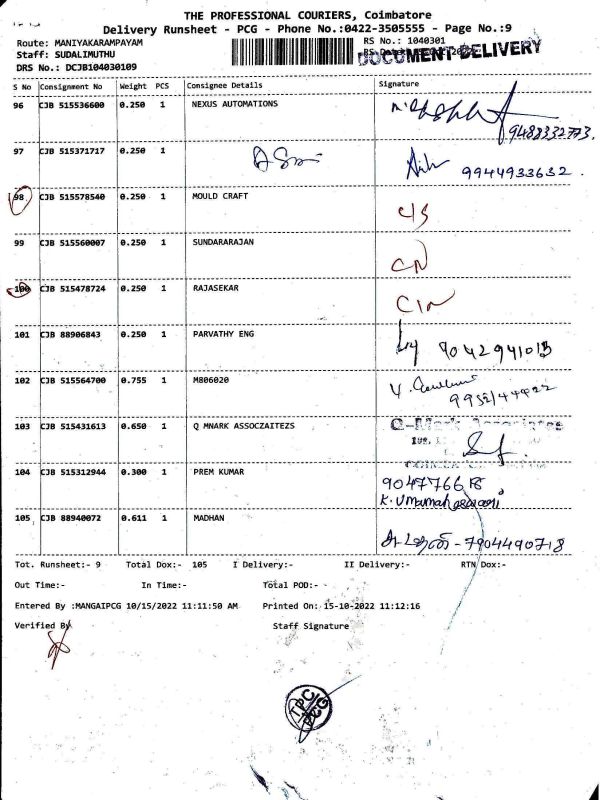 THE PROFESSIONAL COURIERS, Coimbatore
Delivery Runsheet - PCG - Phone No.:0422-3505555 - Page No.:9
Route: MANIYAKARAMPAYAM
RS No.: 1040301
Staff: SUDALIMUTHU
DOCUMENT DELIVERY
DRS No.: DCJB104030109
S No Consignment No Weight PCS Consignee Details Signature
96 CJB 515536600 0.250 1 NEXUS AUTOMATIONS
9488332773.
97 CJB 515371717 0.250 1
9944933632.
98 CJB 515578540 0.250 1 MOULD CRAFT C/S
99 CJB 515560007 0.250 1 SUNDARARAJAN CN
100 CJB 515478724 0.250 1 RAJASEKAR
101 CJB 88906843 0.250 1 PARVATHY ENG
102 CJB 515564700 0.755 1 M806020
103 CJB 515431613 0.650 1 Q MNARK ASSOCZAITEZS Q-Mark Associates
104 CJB 515312944 0.300 1 PREM KUMAR
105 CJB 88940072 0.611 1 MADHAN
7904490718
Tot. Runsheet:- 9 Total Dox:- 105 I Delivery:- II Delivery:- RTN Dox:-
Out Time:- In Time:- Total POD:-
Entered By :MANGAIPCG 10/15/2022 11:11:50 AM Printed On: 15-10-2022 11:12:16
Verified By Staff Signature
TPC
PCG